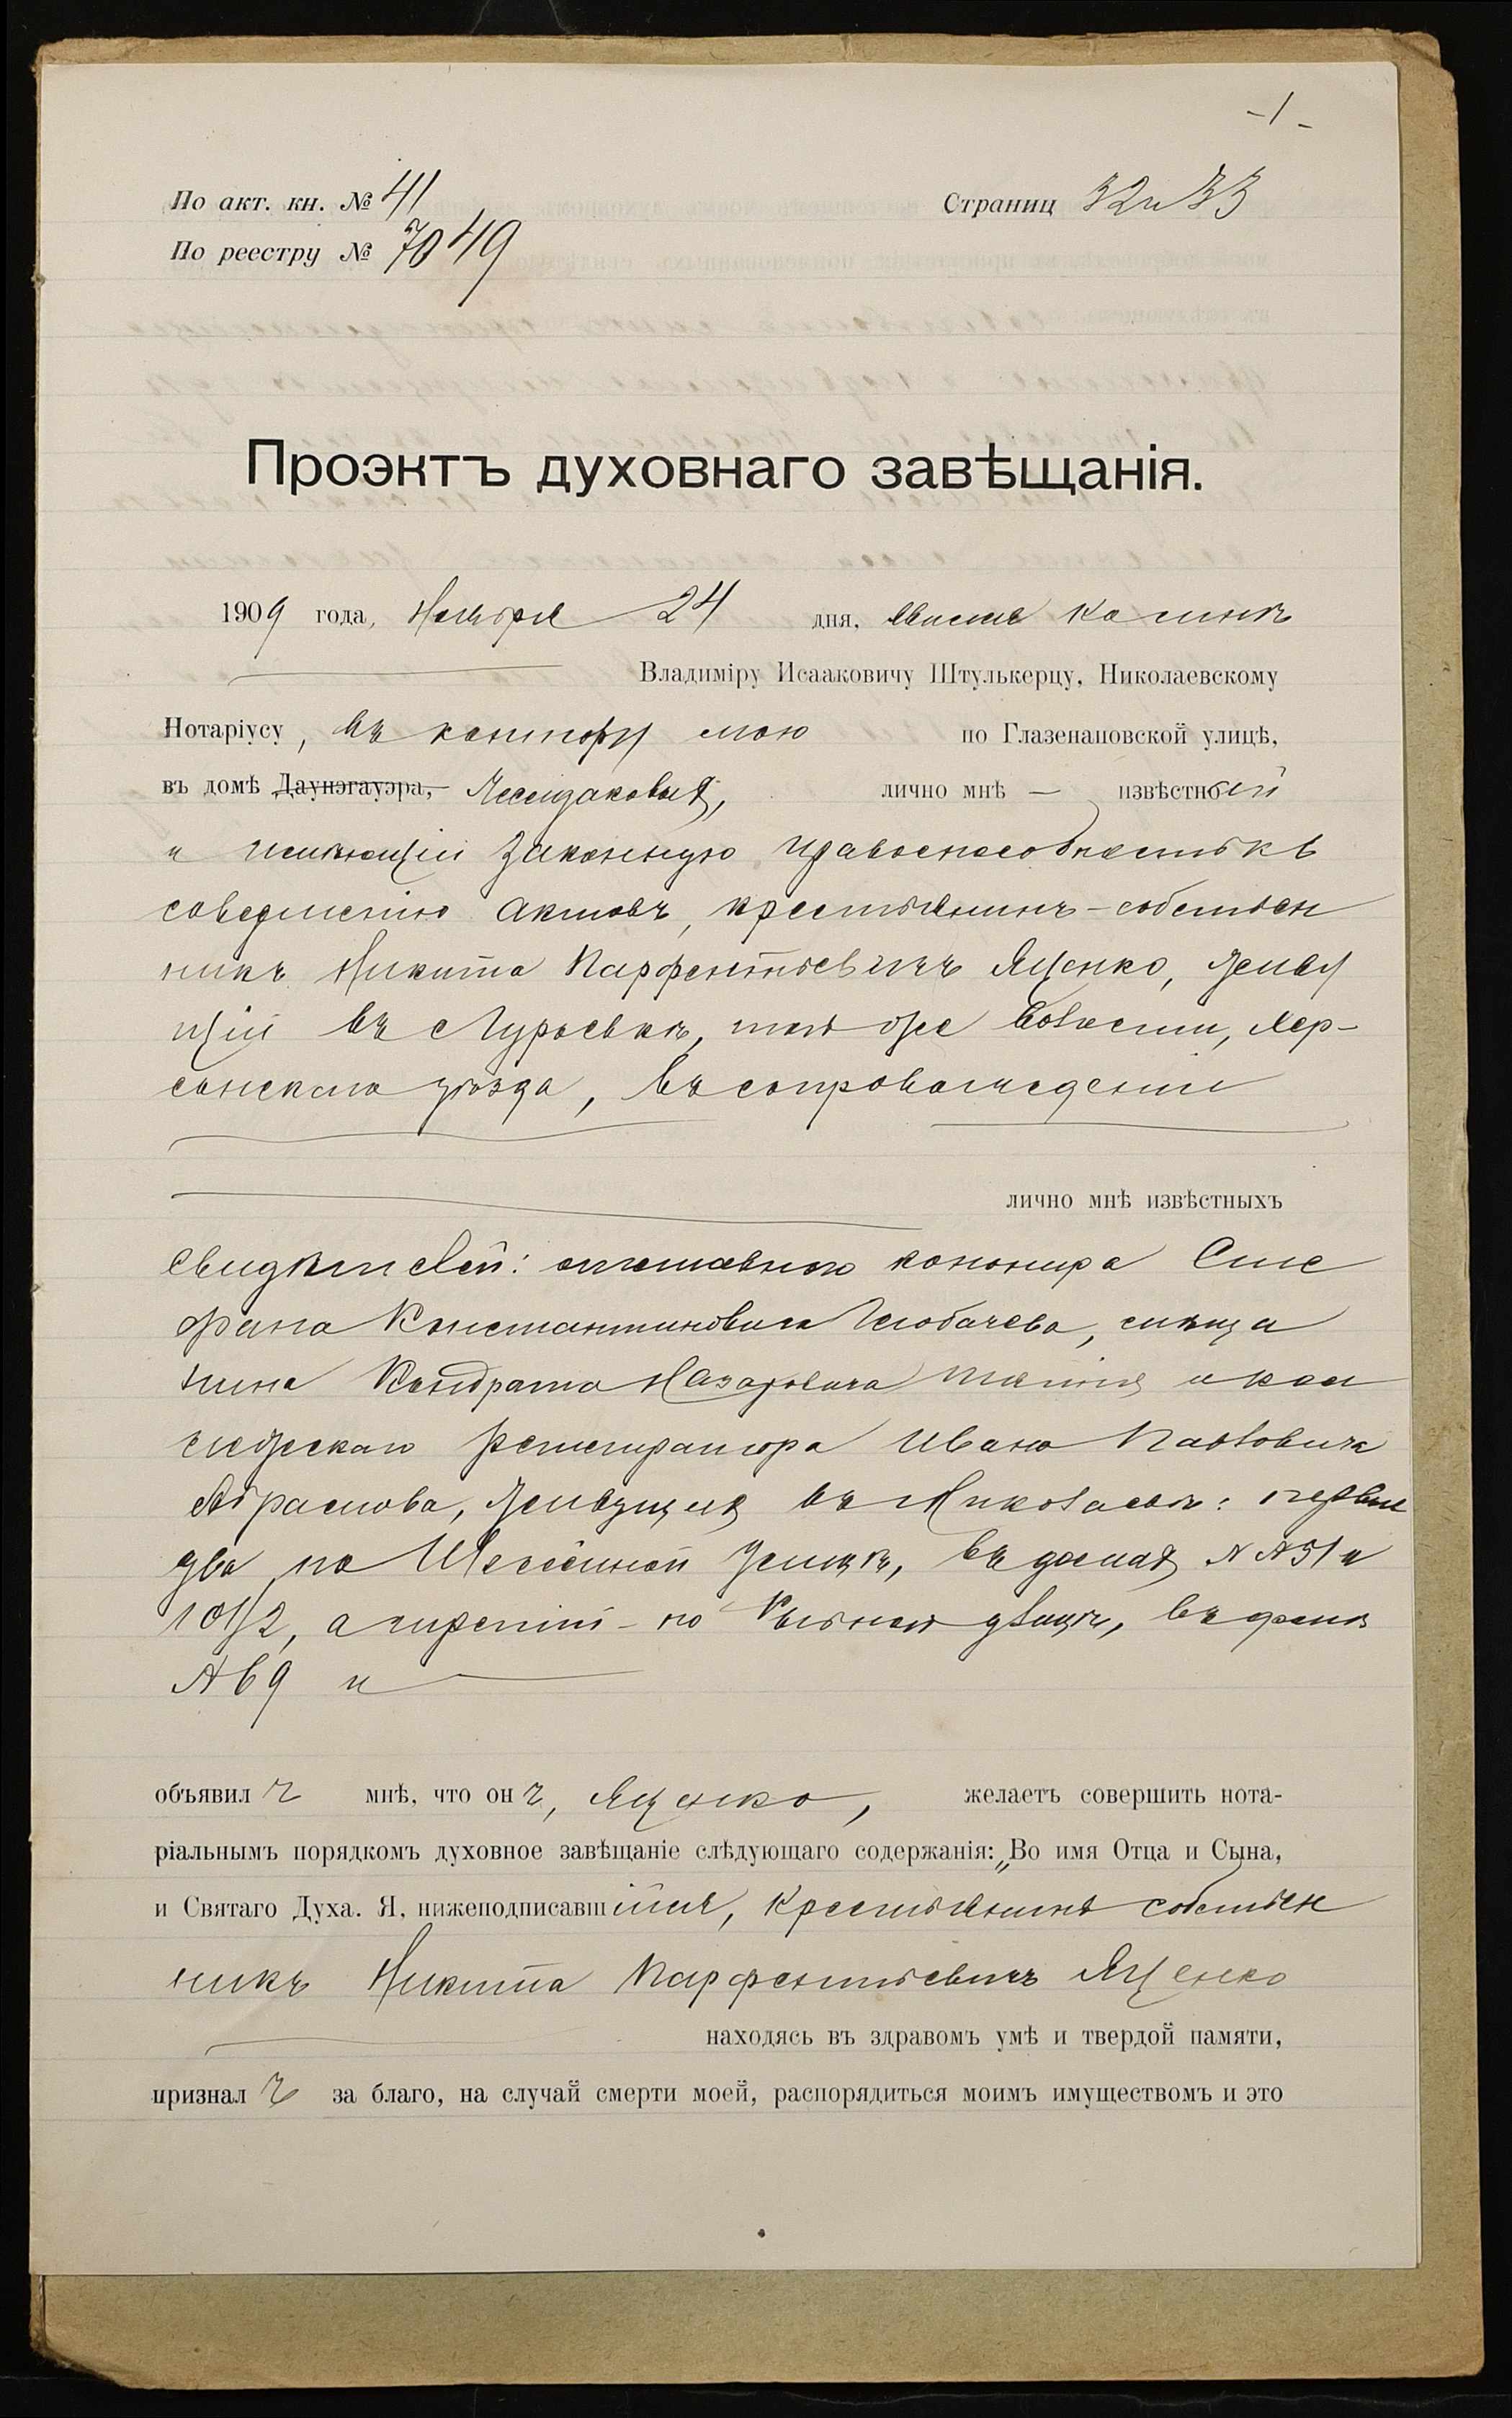 -1-
По акт. кн. № 41
Страниц 32 и 33
По реестру № 7049
Проэктъ духовнаго завѣщанія.
1909 года, Ноября 24 дня, явился ко мнѣ
Владиміру Исааковичу Штулькерцу, Николаевскому
Нотаріусу, въ контору мою по Глазенаповской улицѣ,
въ домѣ Даунэгауэра, лично мнѣ — извѣстный
и имѣющій законную правоспособность къ
совершенію актовъ, крестьянинъ-собствен
никъ Никита Парфентьевичъ Яценко, живу
щій въ Гурьевкѣ, той же волости, Хер-
сонскаго уѣзда, въ сопровожденіи
лично мнѣ извѣстныхъ
свидѣтелей: отставного канонира Сте
фана Константиновича, мѣща
нина Кондрата Назаровича и кол
лежскаго регистратора Ивана Павловича
Абрамова, живущихъ въ Николаевѣ: первые
два по улицѣ, въ домахъ №№ 51 и
101/2, а третій - по улицѣ, въ домѣ
№ 69 и
объявилъ мнѣ, что онъ, Яценко, желаетъ совершить нота-
ріальнымъ порядкомъ духовное завѣщаніе слѣдующаго содержанія: „Во имя Отца и Сына,
и Святаго Духа. Я, нижеподписавшійся, крестьянинъ собствен
никъ Никита Парфентьевичъ Яценко
находясь въ здравомъ умѣ и твердой памяти,
призналъ за благо, на случай смерти моей, распорядиться моимъ имуществомъ и это